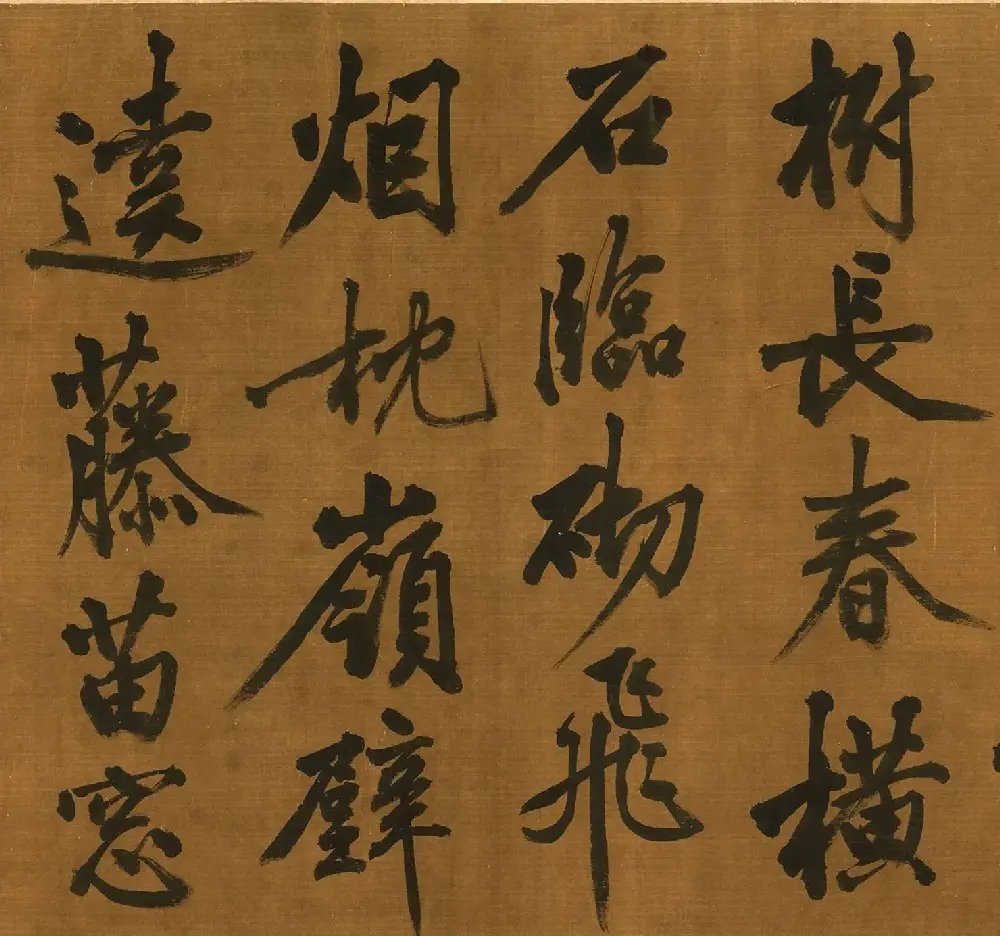 樹長春橫
石臨砌飛
烟枕嶺壁
遶藤苗窓